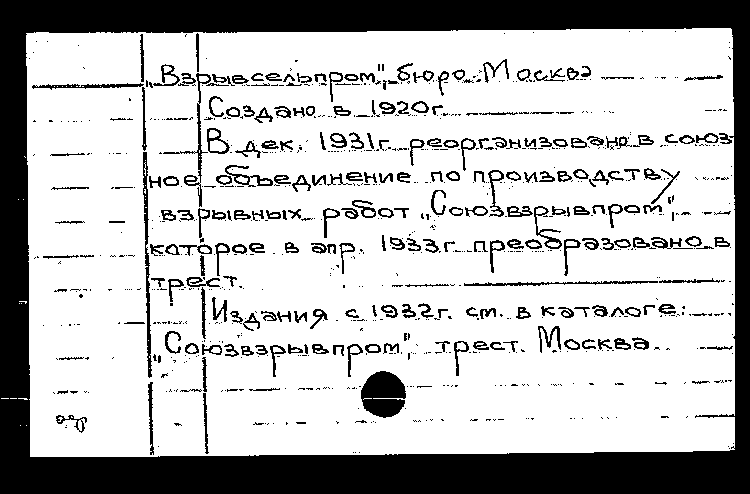 „Взрывсельпром", бюро. Москва
Создано в 1920г.
В дек. 1931г. реорганизовано в союз-
ное объединение по производству
взрывных работ „Союзвзрывпром",
которое в апр. 1933г. преобразовано в
трест.
Издания с 1932г. см. в каталоге:
„Союзвзрывпром", трест. Москва.